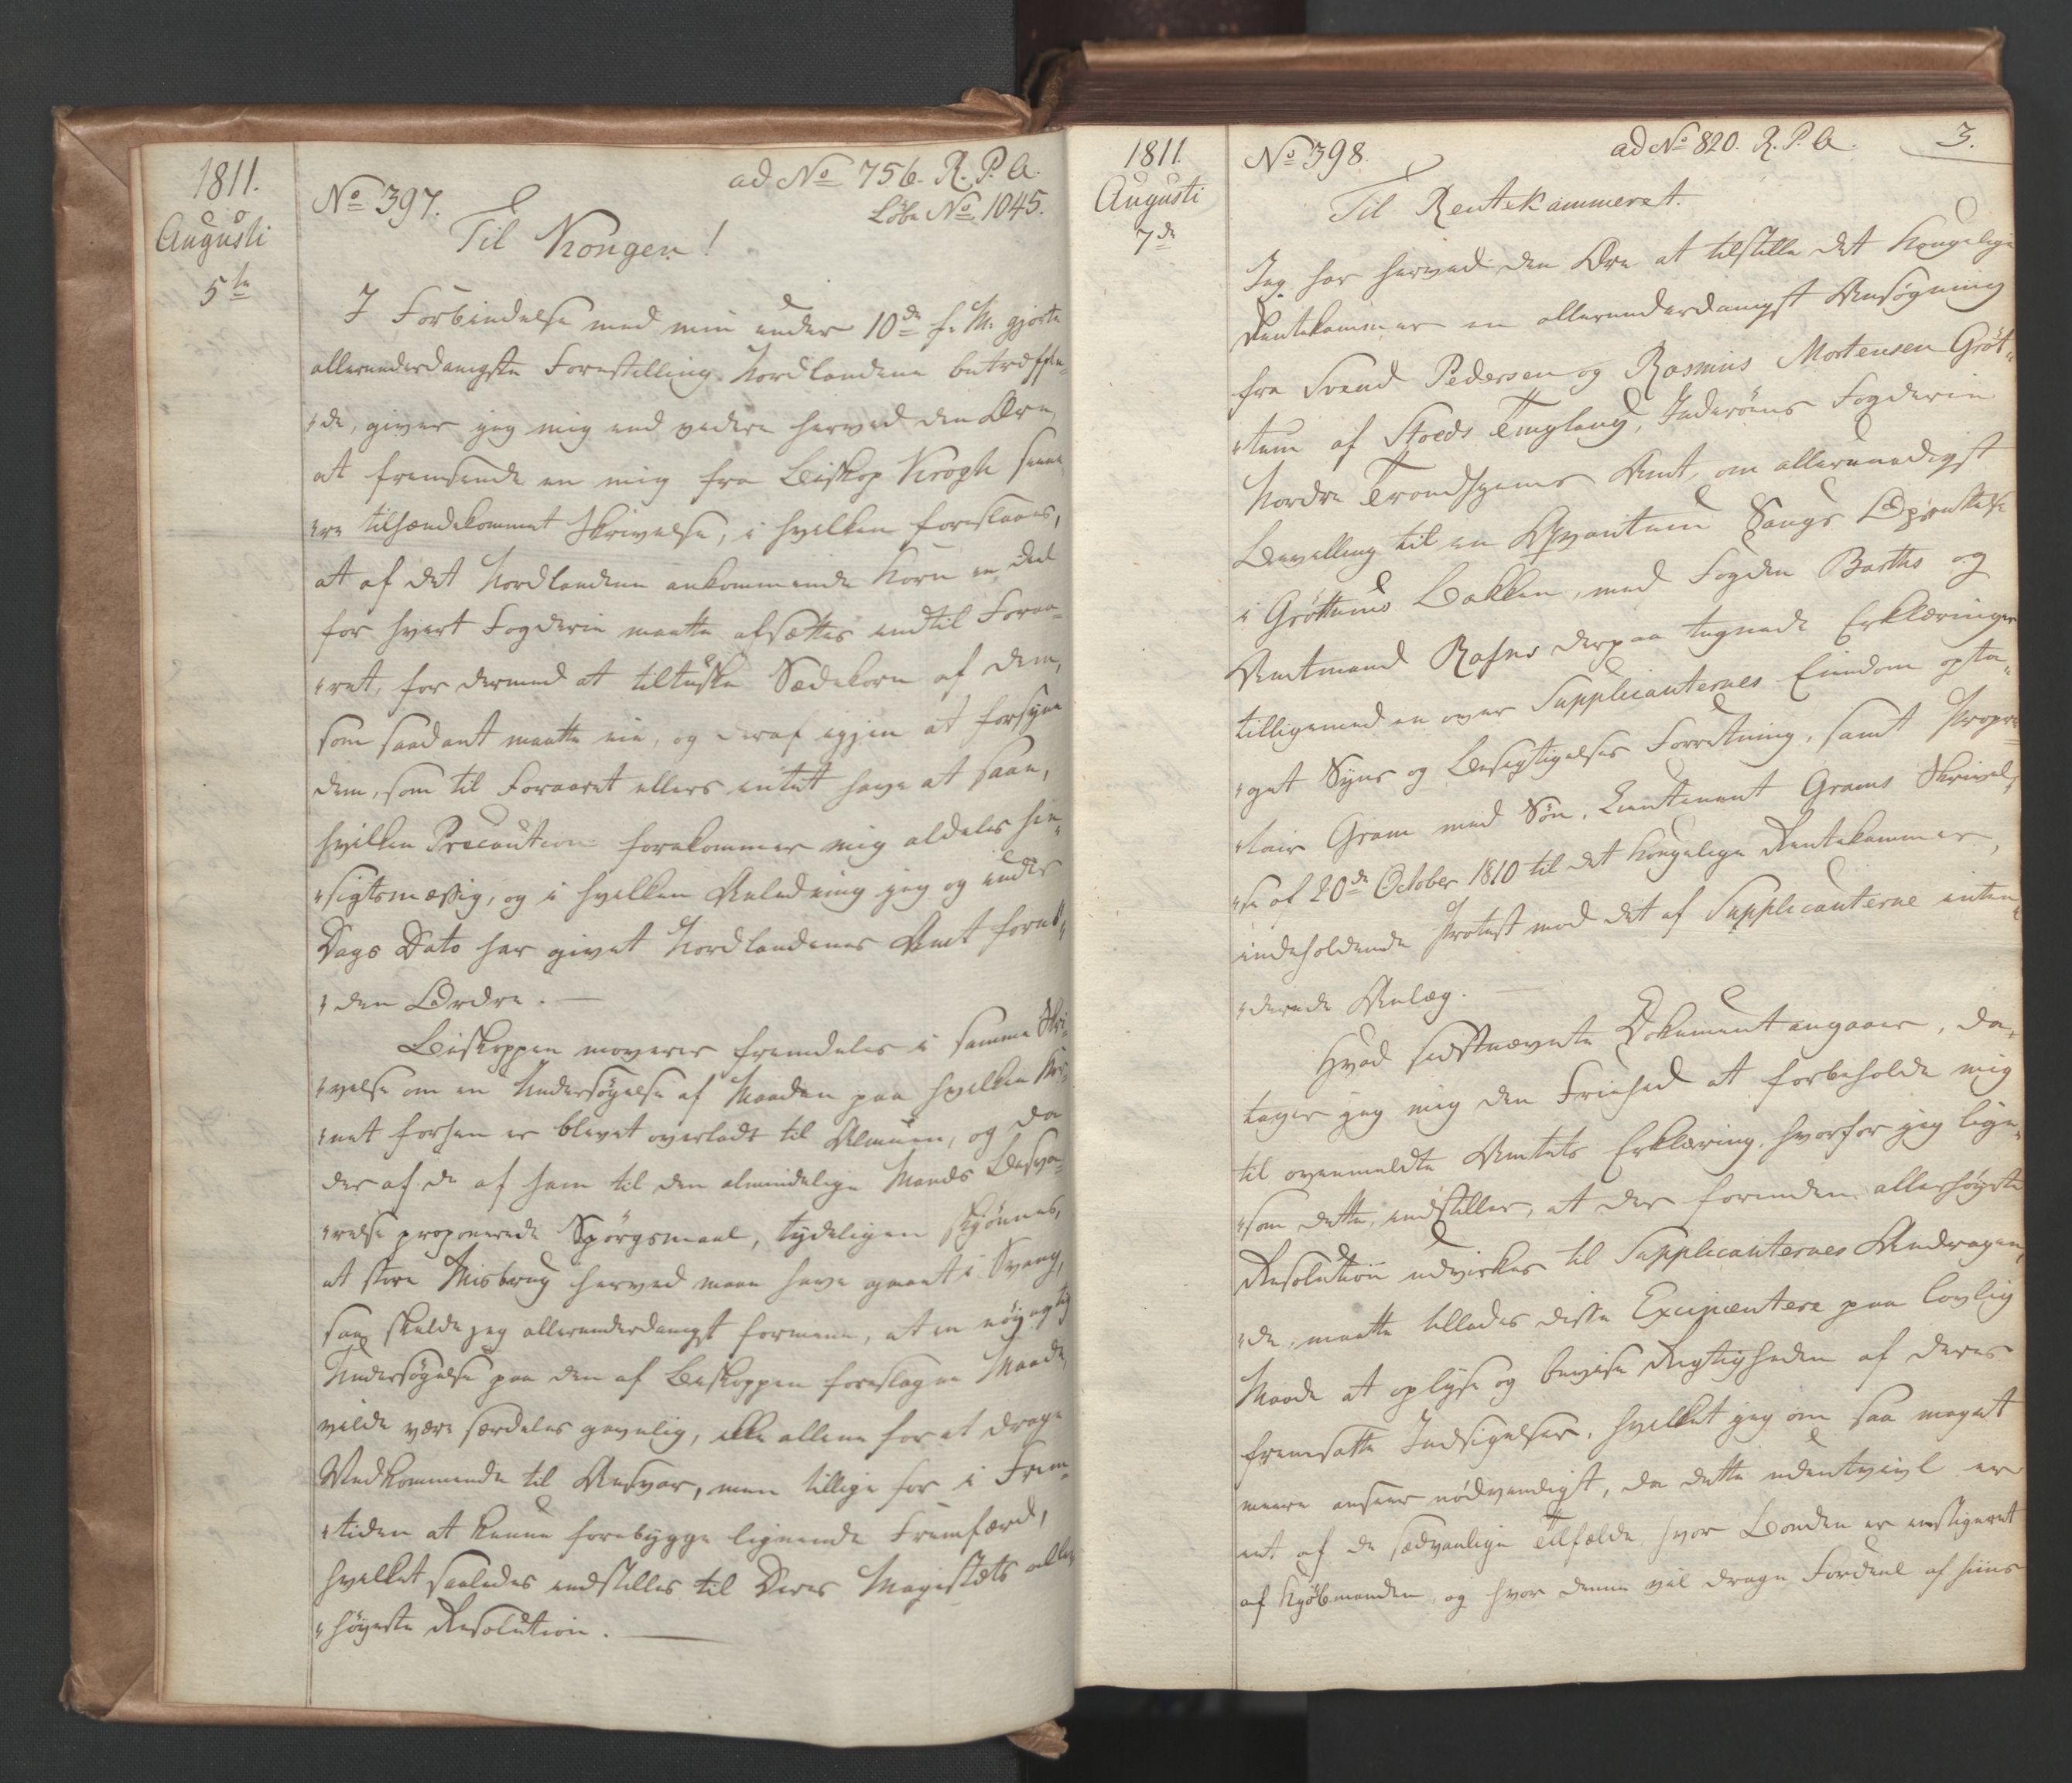 1811.
Augusti
5te
No 397.
ad No 756. R. P. A.
Löbe No 1045.
Til Kongen!
I Forbindelse med min under 10de f. M. gjorte
allerunderdanigste Forestilling Nordlandene betræffen„
„de, giver jeg mig end videre herved den Ære,
at fremsende en mig fra Biskop Krogh sene„
„re tilhændekommet Skrivelse, i hvilken foreslaaes,
at af det Nordlandene ankommende Korn en Deel
for hvert Fogderie maatte afsættes indtil Foraa„
„ret, for dermed at tiltuske Sædekorn af dem,
som saadant maatte eie, og deraf igjen at forsyne
dem, som til Foraaret ellers intet have at saae,
hvilken Precaution forekommer mig aldeles hen„
„sigtsmæssig, og i hvilken Anledning jeg og under
Dags Dato har givet Nordlandenes Amt fornö„
„den Ordre. —
Biskoppen moverer fremdeles i samme Skri„
„velse om en Undersögelse af Maaden paa hvilken Kor„
„net forhen er blevet overladt til Almuen, og da
der af de af ham til den almindelige Mands Besva„
„relse proponerede Spörgsmaal, tydeligen skjönnes,
at store Misbrug herved maae have gaaet i Svang,
saa skulde jeg allerunderdanigst formene, at en nöyagtig
Undersögelse paa den af Biskoppen foreslagne Maade,
vilde være særdeles gavnlig, ikke allene for at drage
Vedkommende til Ansvar, men tillige for i Frem„
„tiden at kunne forebygge lignende Fremfærd,
hvilket saaledes indstilles til Deres Majestæts aller„
„höyeste Resolution. —
1811.
Augusti
7de
No 398.
ad No 820. R. P. A.
3.
Til Rentekammeret.
Jeg har herved den Ære at tilstille det Kongelige
Rentekammer en allerunderdanigst Ansögning
fra Svend Pedersen og Rasmus Mortensen Gröt„
„tem af Stods Tinglaug, Inderöens Fogderie
Nordre Trondhjems Amt, om allernaadigst
Bevilling til en Qvantum Saugs Oprettelse
i Gröttems Bækken, med Fogden Barths og
Amtmand Rafns derpaa tegnede Erklæringer
tilligemed en over Supplicanternes Eiendom opta„
„get Syns og Besigtigelses Forretning, samt Propri„
„tair Gram med Sön, Lieutenant Grams Skrivel„
„se af 20de October 1810 til det Kongelige Rentekammer,
indeholdende Protest mod det af Supplicanterne inten„
„derede Anlæg. —
Hvad sidstnævnte Dokument angaaer, da
tager jeg mig den Friehed at forbeholde mig
til ovenmeldte Amtets Erklæring, hvorfor jeg lige„
„som dette, indstiller, at der forinden allerhöyeste
Resolution udvirkes til Supplicanternes Andragen„
„de, maatte tillades disse Excipientere paa lovlig
Maade at oplyse og bevise Rigtigheden af deres
fremsatte Indsigelser, hvilket jeg om saa meget
meere anseer nödvendigt, da dette udentvivl er
eet af de sædvanlige Tilfælde hvor Bonden er instigeret
af Kjöbmanden, og hvor denne vil drage Fordeel af hiins